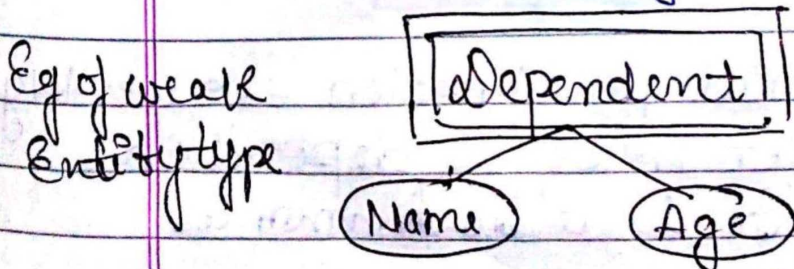 Eg of weak
Entity type
Dependent
Name
Age